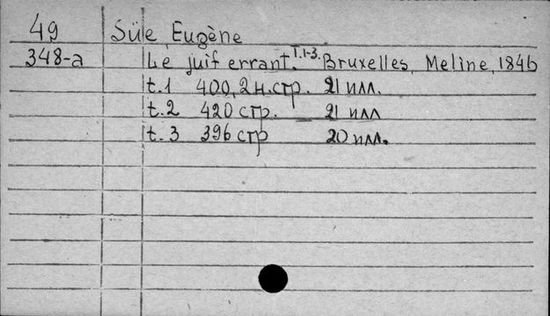 49 Süe, Eugène
348-a Le juif errant. T.1-3. Bruxelles, Meline, 1846
t.1 400, 2 н.стр. 21 илл.
t.2 420 стр. 21 илл
t.3 396 стр 20 илл.